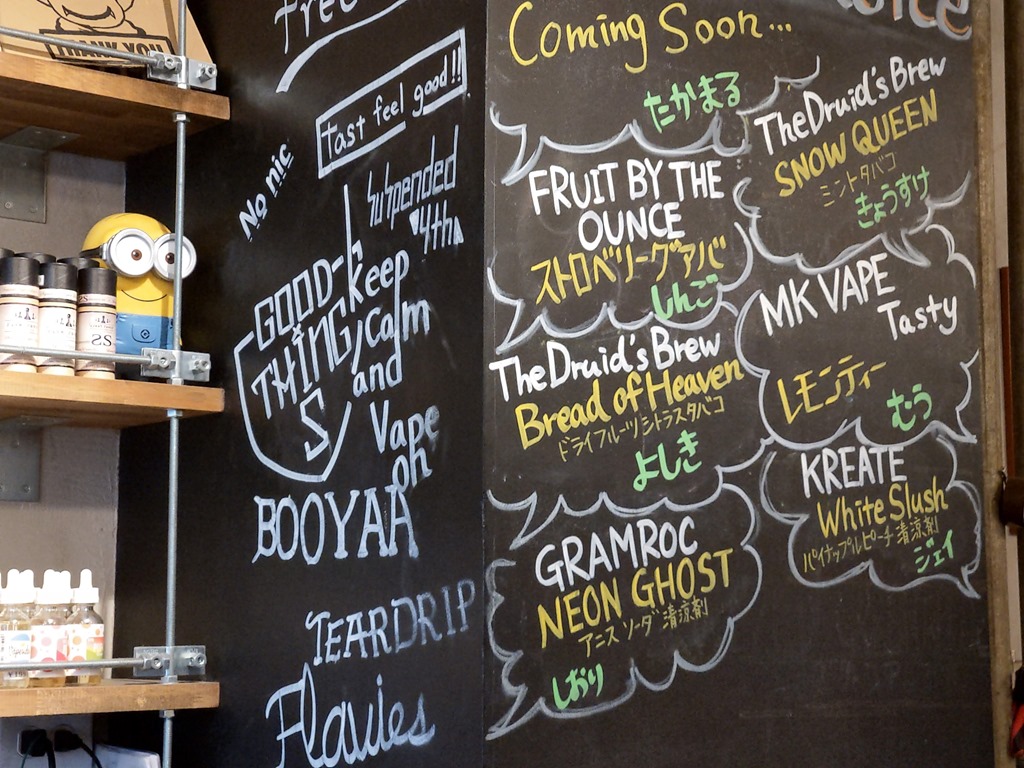 THANK YOU
free
Tast feel good!!
No nic
Suspended
4th
GOOD
THING
S
keep
calm
and
Vape
on
BOOYAH
TEARDRIP
Flavies
Coming Soon...
たかまる
FRUIT BY THE
OUNCE
ストロベリーグアバ
しんご
The Druid's Brew
Bread of Heaven
ドライフルーツシトラスタバコ
よしき
GRAMROC
NEON GHOST
アニス ソーダ 清涼剤
しおり
The Druid's Brew
SNOW QUEEN
ミントタバコ
きょうすけ
MK VAPE
Tasty
レモンティー
むう
KREATE
White Slush
パイナップルピーチ清涼剤
ジェイ